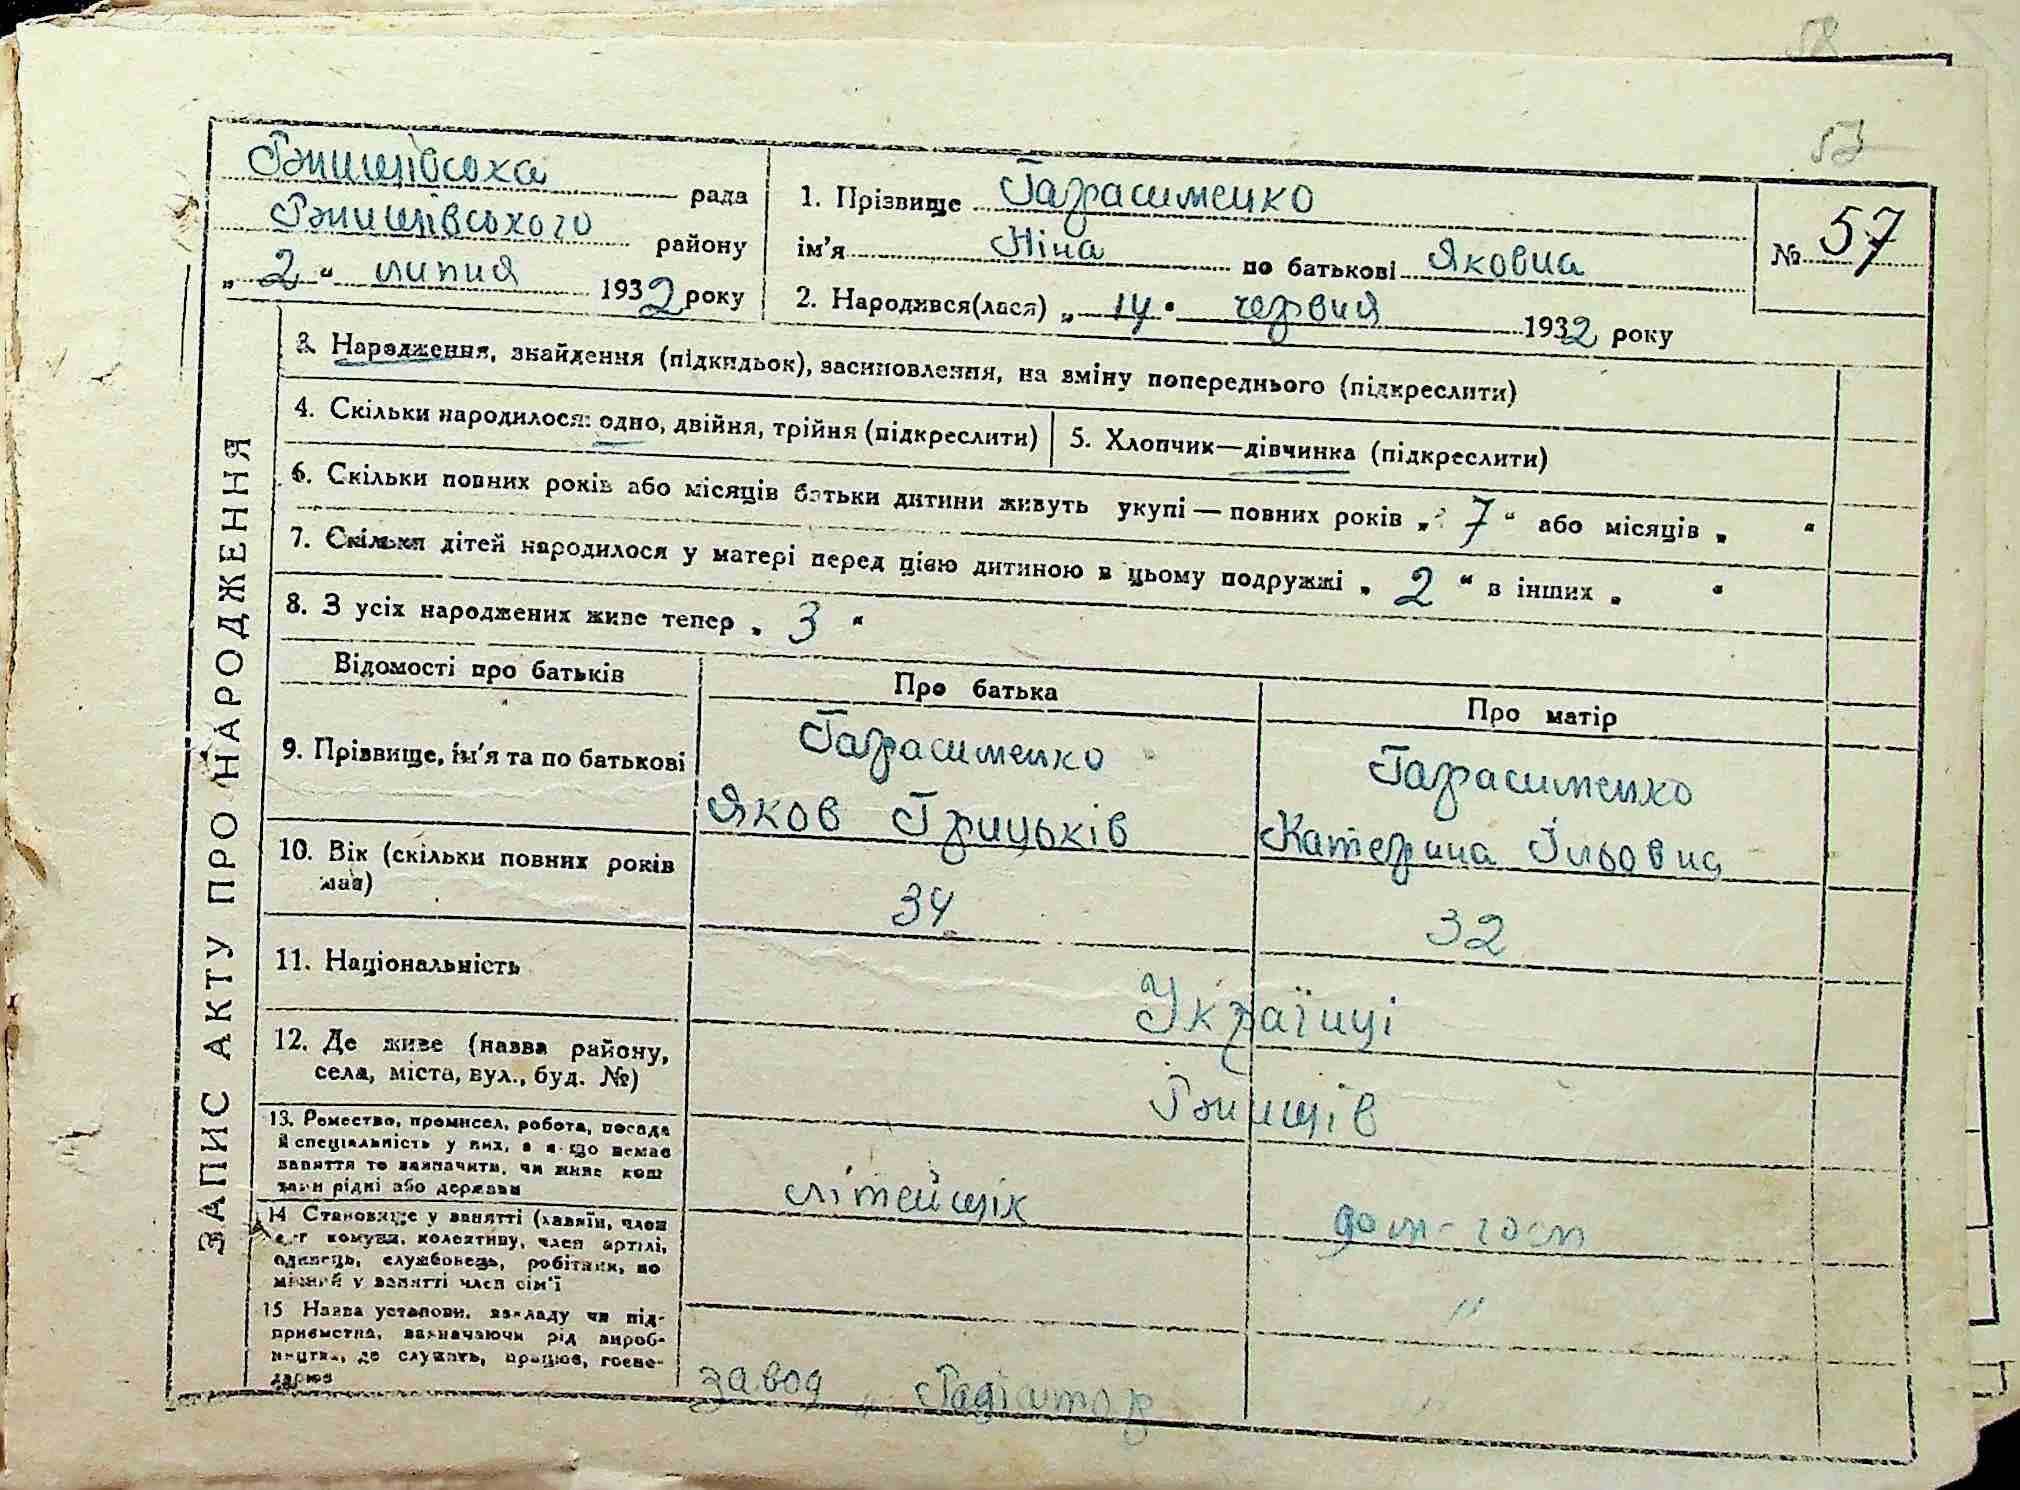 58
57
Ржищівська рада
Ржищівського району
„ 2 “ липня 1932 року
1. Прізвище Гарасименко
ім’я Ніна по батькові Яковна
№ 57
2. Народився(лася) „ 14 “ червня 1932 року
3. Народження, знайдення (підкидьок), засиновлення, на зміну попереднього (підкреслити)
4. Скільки народилося: одно, двійня, трійня (підкреслити)
5. Хлопчик—дівчинка (підкреслити)
6. Скільки повних років або місяців батьки дитини живуть укупі — повних років „ 7 “ або місяців „ “
7. Скільки дітей народилося у матері перед цією дитиною в цьому подружжі „ 2 “ в інших „ “
8. З усіх народжених живе тепер „ 3 “
ЗАПИС АКТУ ПРО НАРОДЖЕННЯ
Відомості про батьків
Про батька
Про матір
9. Прізвище, ім’я та по батькові
Гарасименко
Яков Грицьків
Гарасименко
Катерина Ільовна
10. Вік (скільки повних років
має)
34
32
11. Національність
Українці
12. Де живе (назва району,
села, міста, вул., буд. №)
Ржищів
13. Ремество, промисел, робота, посада
й спеціяльність у них, а якщо немає
заняття то зазначити, чи живе кош
тами рідні або держави
літейщік
дом-госп
14 Становище у занятті (хазяїн, член
с.-г комуни, колективу, член артілі,
одинець, службовець, робітник, по
мічний у занятті член сім’ї
"
15 Назва установи, закладу чи під-
приємства, зазначаючи рід вироб-
ництва, де служить, працює, госпо-
дарює
завод „ Радіатор
"